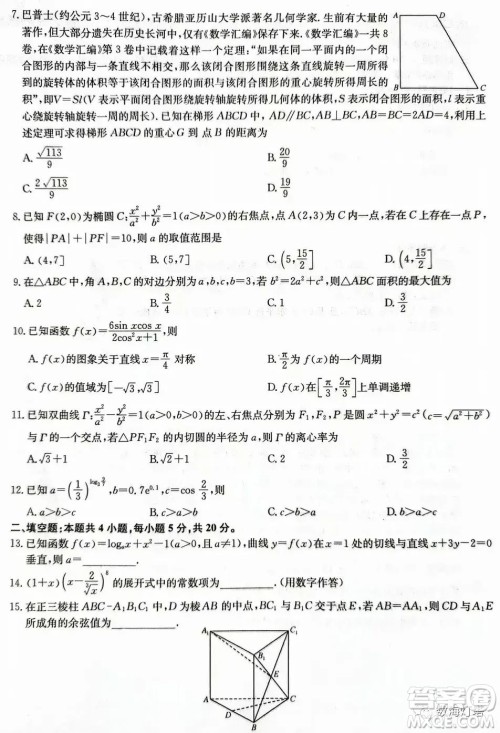 7. 巴普士(约公元 3～4 世纪)，古希腊亚历山大学派著名几何学家. 生前有大量的
著作，但大部分遗失在历史长河中，仅有《数学汇编》保存下来.《数学汇编》一共 8
卷，在《数学汇编》第 3 卷中记载着这样一个定理：“如果在同一平面内的一个闭
合图形的内部与一条直线不相交，那么该闭合图形围绕这条直线旋转一周所得
到的旋转体的体积等于该闭合图形的面积与该闭合图形的重心旋转所得周长的
积”，即V=Sl(V 表示平面闭合图形绕旋转轴旋转所得几何体的体积，S 表示闭合图形的面积，l 表示重
心绕旋转轴旋转一周的周长). 已知在梯形 ABCD 中，AD∥BC，AB⊥BC，AB=BC=2AD=4，利用上
述定理可求得梯形 ABCD 的重心G 到点B 的距离为
A. √113/9 B. 20/9
C. 2√113/9 D. 19/9
8. 已知 F(2,0)为椭圆 C: x²/a²+y²/b²=1(a>b>0)的右焦点，点 A(3,0)为 C 内一点，若在 C 上存在一点 P，
使得|PA|+|PF|=10，则 a 的取值范围是
A. (4,7] B. (5,7] C. (5,15/2] D. [4,15/2]
9. 在△ABC 中，角 A,B,C 的对边分别为 a,b,c，已知 b=3，若 b²=2a²+c²，则△ABC 面积的最大值为
A. 2 B. 3/4 C. 3 D. 3/2
10. 已知函数 f(x)=6sin xcos x/2cos²x+1，则
A. f(x)的图象关于直线 x=π/4 对称 B. π/2 为 f(x)的一个周期
C. f(x)的值域为[-√3,√3] D. f(x)在[π/3,2π/3]上单调递增
11. 已知双曲线 Γ: x²/a²-y²/b²=1(a>0,b>0)的左、右焦点分别为 F₁,F₂，P 是圆 x²+y²=c²(c=√a²+b²)
与 Γ 的一个交点，若△PF₁F₂的内切圆的半径为 a，则 Γ 的离心率为
A. √3+1 B. √3 C. √2+1 D. √2
A. a>b>c B. b>a>c C. b>c>a D. a>c>b
二、填空题：本题共 4 小题，每小题 5 分，共 20 分。
13. 已知函数 f(x)=logₐx+x²-1(a>0，且 a≠1)的图象在 x=1 处的切线与 x+3y-2=0
垂直，则 a=____.
14. (1+x)(x-2/∛x)⁸的展开式中的常数项为____.(用数字作答)
15. 在正三棱柱 ABC-A₁B₁C₁中，D 为棱 AB 的中点，B₁C 与 BC₁交于点 E，若 AB=AA₁，则 CD 与 A₁E
所成角的余弦值为____.